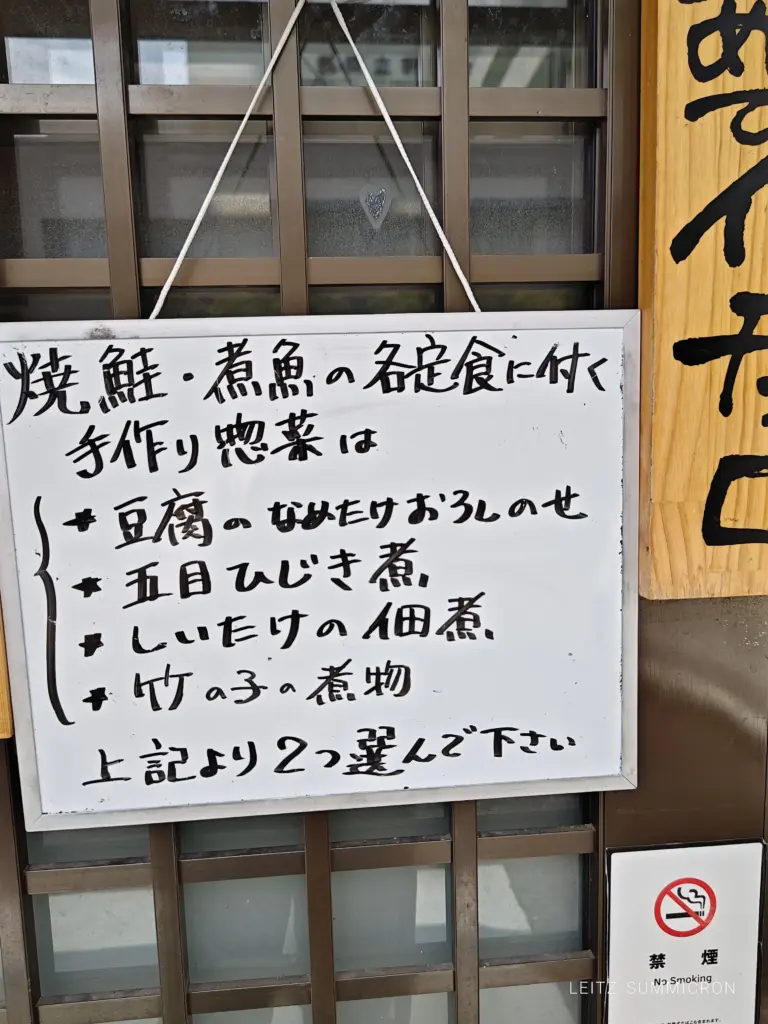 焼鮭・煮魚の各定食に付く
手作り惣菜は
* 豆腐のなめたけおろしのせ
* 五目ひじき煮
* しいたけの佃煮
* 竹の子の煮物
上記より2つ選んで下さい
めてイチロ
禁煙
No Smoking
LEITZ SUMMICRON